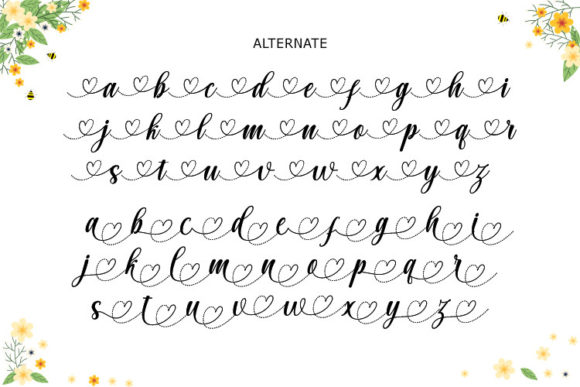 ALTERNATE
a b c d e f g h i
j k l m n o p q r
s t u v w x y z
a b c d e f g h i
j k l m n o p q r
s t u v w x y z